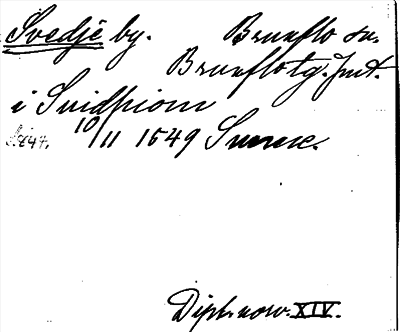 Svedje by. Brunflo sn.
Brunflo tg. Jmt.
i Suidhiom
10/11 1549
Dipl. norv. XIV.